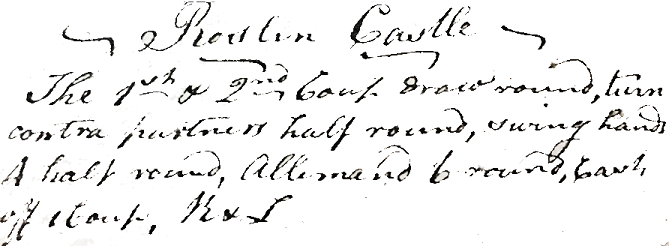 Roslin Castle
The 1st & 2nd Coup draw round, turn
contra partners half round, swing hands
4 half round, Allemand 6 round, Cast
off 1 Coup, R & L